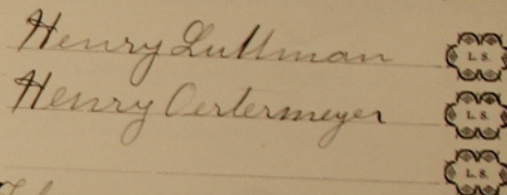 Henry Luttman L. S.
Henry Oertermeyer L. S.
L. S.